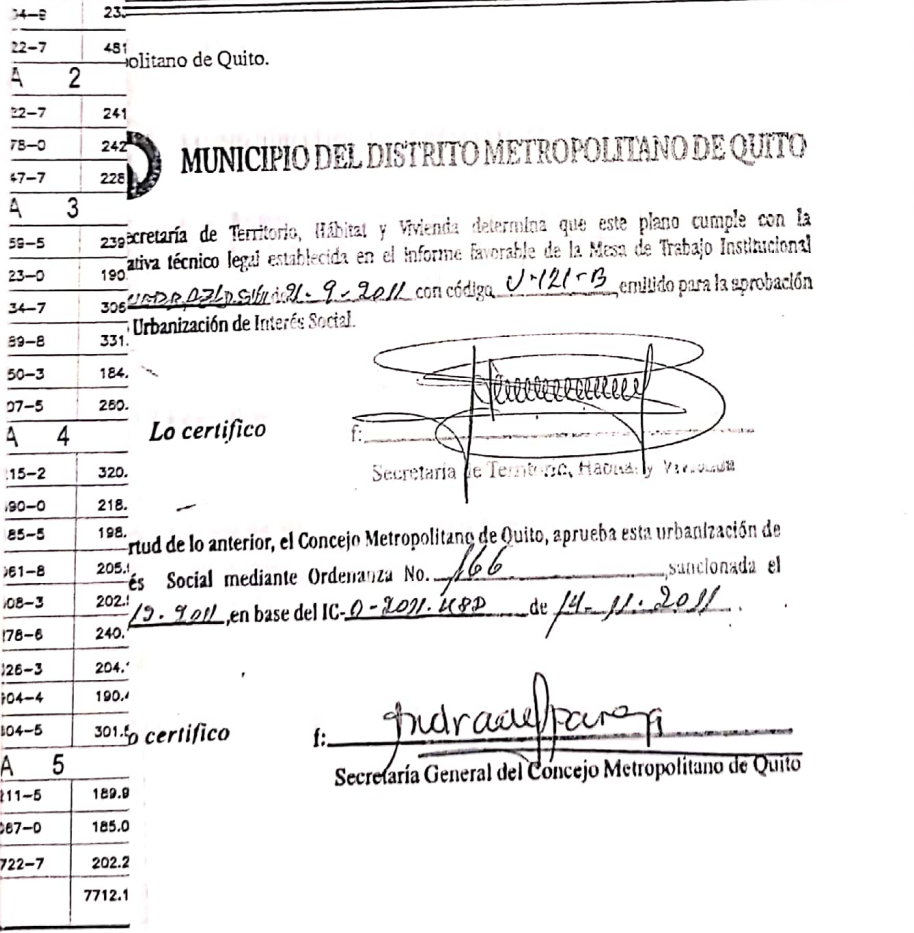 34-8 23
22-7 481
A 2
22-7 241
78-0 242
47-7 228
A 3
59-5 239
23-0 190
34-7 306
89-8 331.
50-3 184.
07-5 260.
A 4
15-2 320.
90-0 218.
85-5 198.
061-8 205.
08-3 202.
178-6 240.
026-3 204.
04-4 190.
404-5 301.
A 5
11-5 189.9
067-0 185.0
722-7 202.2
7712.1
olitano de Quito.
MUNICIPIO DEL DISTRITO METROPOLITANO DE QUITO
ecretaría de Territorio, Hábitat y Vivienda determina que este plano cumple con la
ativa técnico legal establecida en el informe favorable de la Mesa de Trabajo Institucional
21-9-2011 con código U-121-B emitido para la aprobación
Urbanización de Interés Social.
Lo certifico f:
Secretaría de Territorio, Hábitat y Vivienda
rtud de lo anterior, el Concejo Metropolitano de Quito, aprueba esta urbanización de
és Social mediante Ordenanza No. 166 ,sancionada el
12-2011 ,en base del IC-O-2011-
de 14-11-2011.
o certifico f:
Secretaría General del Concejo Metropolitano de Quito